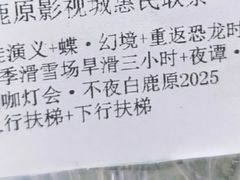 鹿原影视城惠民联票
演义+蝶·幻境+重返恐龙时
季滑雪场旱滑三小时+夜谭·
咖灯会·不夜白鹿原2025
行扶梯+下行扶梯